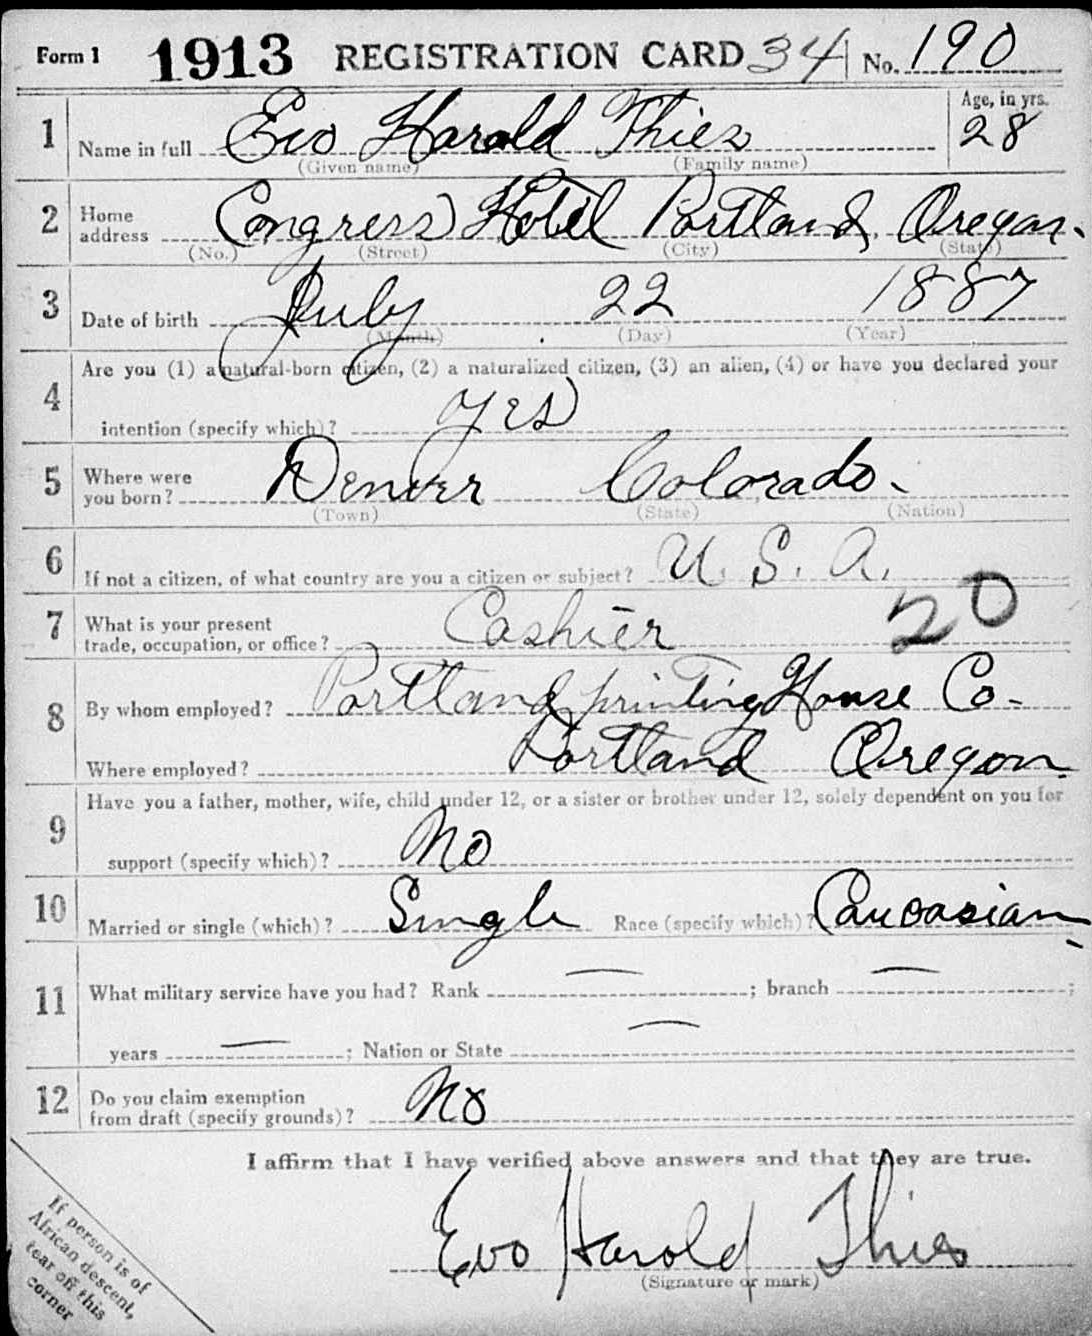 Form 1 1913 REGISTRATION CARD 34 No. 190
1 Name in full Evo Harold Thies Age, in yrs. 28
(Given name) (Family name)
2 Home address Congress Hotel Portland, Oregon.
(No.) (Street) (City) (State)
3 Date of birth July 22 1887
(Month) (Day) (Year)
4 Are you (1) a natural-born citizen, (2) a naturalized citizen, (3) an alien, (4) or have you declared your
intention (specify which)? yes
5 Where were you born? Denver Colorado.
(Town) (State) (Nation)
6 If not a citizen, of what country are you a citizen or subject? U. S. A.
7 What is your present trade, occupation, or office? Cashier 20
8 By whom employed? Portland printing House Co.
Where employed? Portland Oregon.
9 Have you a father, mother, wife, child under 12, or a sister or brother under 12, solely dependent on you for
support (specify which)? No
10 Married or single (which)? Single Race (specify which)? Caucasian
11 What military service have you had? Rank — ; branch — ;
years — ; Nation or State —
12 Do you claim exemption from draft (specify grounds)? No
I affirm that I have verified above answers and that they are true.
Evo Harold Thies
(Signature or mark)
If person is of
African descent,
tear off this
corner